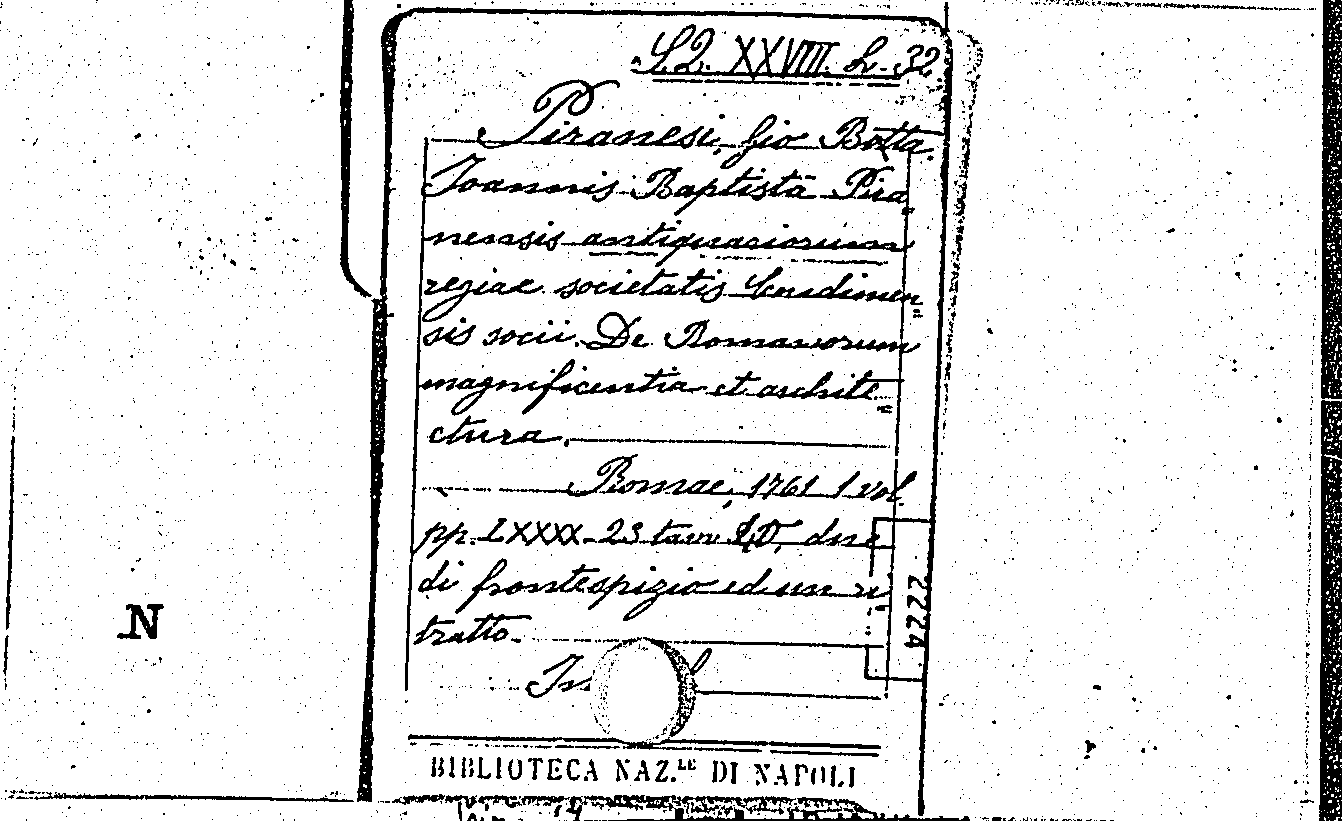 S.Q. XXVIII. L. 32
Piranesi, Gio Batta.
Joannis Baptistā Pira=
nensis antiquariorum
regiae societatis londinen=
sis socii. De Romanorum
magnificentia et archite=
ctura.
Romae, 1761 1 vol.
pp. LXXXX-23 tavv due
di frontespizio ed un ri=
tratto.
2224
N
BIBLIOTECA NAZ.LE DI NAPOLI